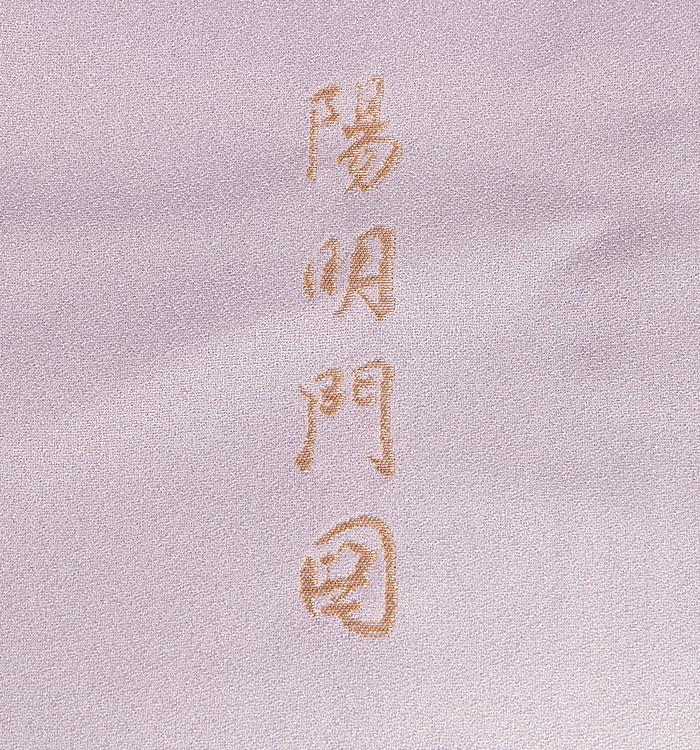 陽明門図